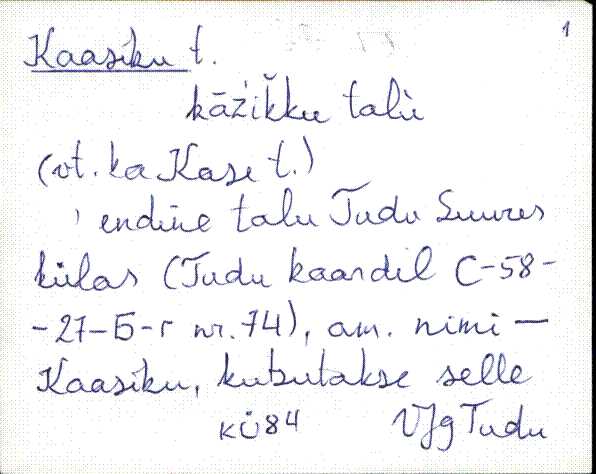 1
Kaasiku t.
kāžikku talù
(vt. ka Kase t.)
endine talu Tudu Suures
külas (Tudu kaardil C-58-
-27-Б-г nr. 74), am. nimi —
Kaasiku, kutsutakse selle
KÜ84 VJg Tudu